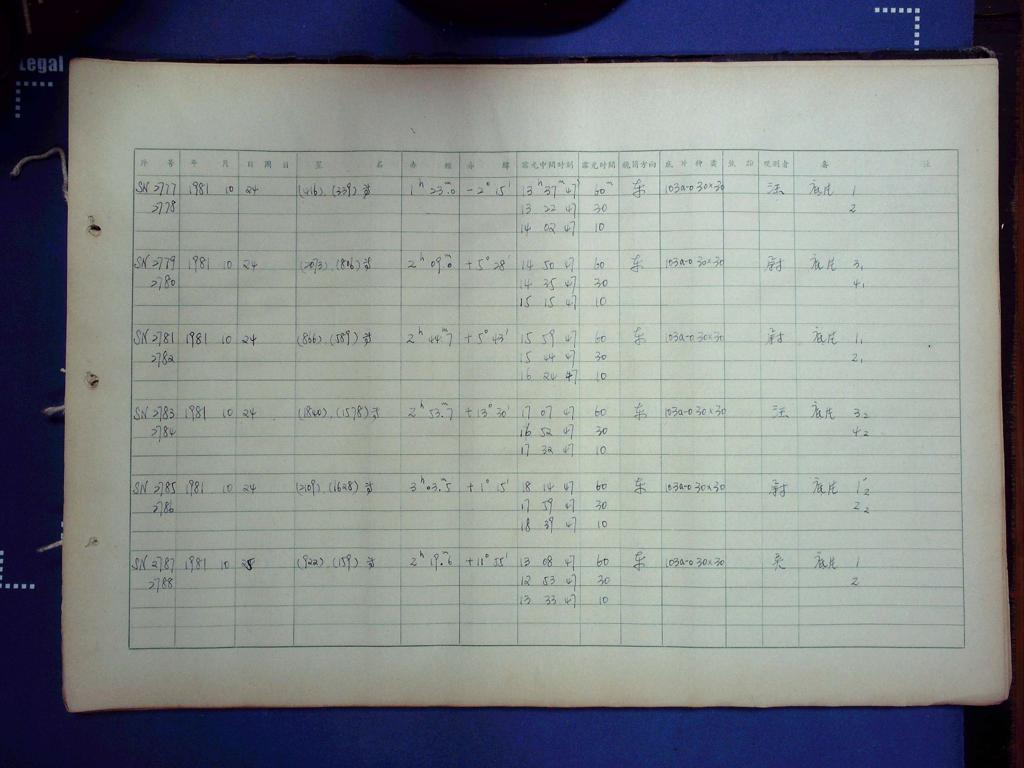 Legal
序号 年 月 日 期 日 星 名 赤经 赤纬 露光中间时刻 露光时间 镜筒方向 底片种类 观测者 备 注
SN 2777 1981 10 24 (416), (339) 等 1ʰ 23ᵐ.0 -2° 15′ 13ʰ 37ᵐ 47ˢ 60ᵐ 东 103a-0 30×30 底片 1
2778 13 22 47 30 2
14 02 47 10
SN 2779 1981 10 24 (2073), (806) 等 2ʰ 09ᵐ.0 +5° 28′ 14 50 47 60 东 103a-0 30×30 尉 底片 3₁
2780 14 35 47 30 4₁
15 15 47 10
SN 2781 1981 10 24 (836), (589) 等 2ʰ 44ᵐ.7 +5° 43′ 15 59 47 60 东 103a-0 30×30 尉 底片 1₁
2782 15 44 47 30 2₁
16 24 47 10
SN 2783 1981 10 24 (1840), (1578) 等 2ʰ 53ᵐ.7 +13° 30′ 17 07 47 60 东 103a-0 30×30 底片 3₂
2784 16 52 47 30 4₂
17 32 47 10
SN 2785 1981 10 24 (2109), (1628) 等 3ʰ 03ᵐ.5 +1° 15′ 18 14 47 60 东 103a-0 30×30 尉 底片 1₂
2786 17 59 47 30 2₂
18 39 47 10
SN 2787 1981 10 25 (922), (159) 等 2ʰ 19ᵐ.6 +11° 55′ 13 08 47 60 东 103a-0 30×30 底片 1
2788 12 53 47 30 2
13 33 47 10